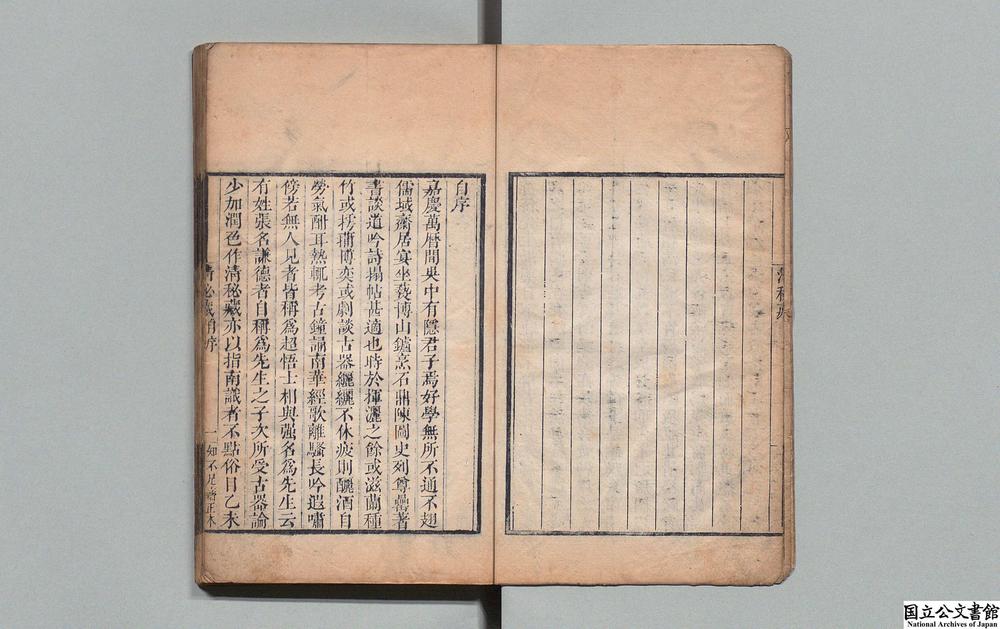 清秘藏
自序
嘉慶萬曆間吳中有隱君子焉好學無所不通不翅
儒域齋居宴坐爇博山鑪烹石鼎陳圖史列尊罍著
書談道吟詩搨帖甚適也時於揮灑之餘或滋蘭種
竹或摴蒱博奕或劇談古器纚纚不休疲則釃酒自
勞氣酣耳熱輒考古鐘誦南華經歌離騷長吟遐嘯
傍若無人見者皆稱爲超悟士相與强名爲先生云
有姓張名謙德者自稱爲先生之子次所受古器論
少加潤色作清秘藏亦以指南識者不點俗目乙未
清秘藏自序
一
知不足齋正本
国立公文書館
National Archives of Japan